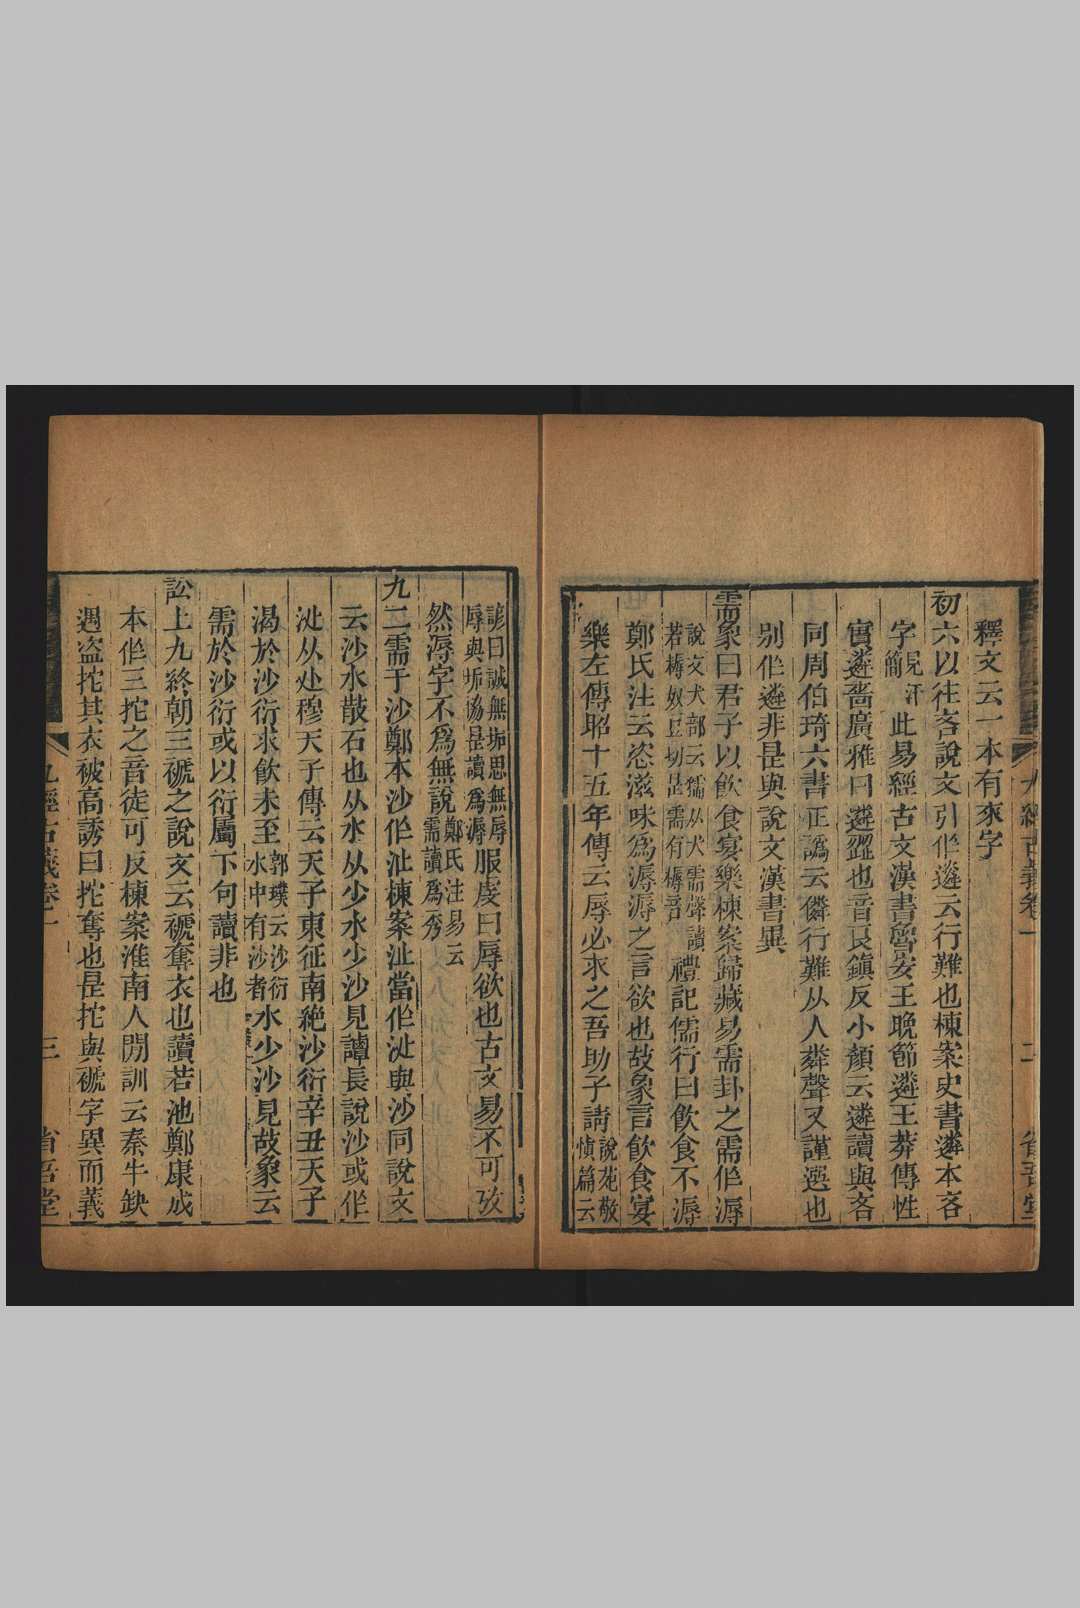 釋文云一本有來字
初六以往吝說文引作遴云行難也棟案史書遴本吝
字見汗簡此易經古文漢書魯安王晚節遴王莽傳性
實遴嗇廣雅曰遴歰也音艮鎭反小顏云遴讀與吝
同周伯琦六書正譌云僯行難从人粦聲又謹選也
別作遴非是與說文漢書異
需象曰君子以飲食宴樂棟案歸藏易需卦之需作溽
說文犬部云獳从犬需聲讀若槈奴豆切是需有槈音禮記儒行曰飲食不溽
鄭氏注云恣滋味爲溽溽之言欲也故象言飲食宴
樂左傳昭十五年傳云辱必求之吾助子請說苑敬愼篇云
諺曰誠無垢思無辱辱與垢協是讀爲溽服虔曰辱欲也古文易不可攷
然溽字不爲無說鄭氏注易云需讀爲秀
九二需于沙鄭本沙作沚棟案沚當作沙與沙同說文
云沙水散石也从水从少水少沙見譚長說沙或作
沚从沚穆天子傳云天子東征南絕沙衍辛丑天子
渴於沙衍求飲未至郭璞云沙衍水中有沙者水少沙見故象云
需於沙衍或以衍屬下句讀非也
訟上九終朝三褫之說文云褫奪衣也讀若池鄭康成
本作三拕之音徒可反棟案淮南人閒訓云秦牛缺
遇盜拕其衣被高誘曰拕奪也是拕與褫字異而義
九經古義卷一
二
省吾堂
九經古義卷一
三
省吾堂